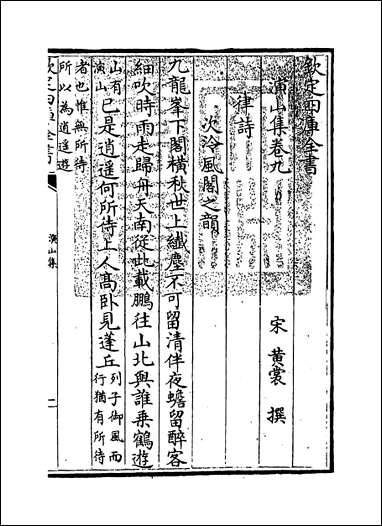 欽定四庫全書
演山集卷九
宋 黃裳 撰
律詩
次泠風閣之韻
九龍峯下閣橫秋世上纎塵不可留清伴夜蟾留醉客
細吹時雨走歸舟天南從此載鵬往山北與誰乗鶴遊
山有
演山
已是逍遥何所待上人髙卧見蓬丘
列子御風而
行猶有所待
者也惟無所待
所以為逍遥遊
欽定四庫全書
演山集